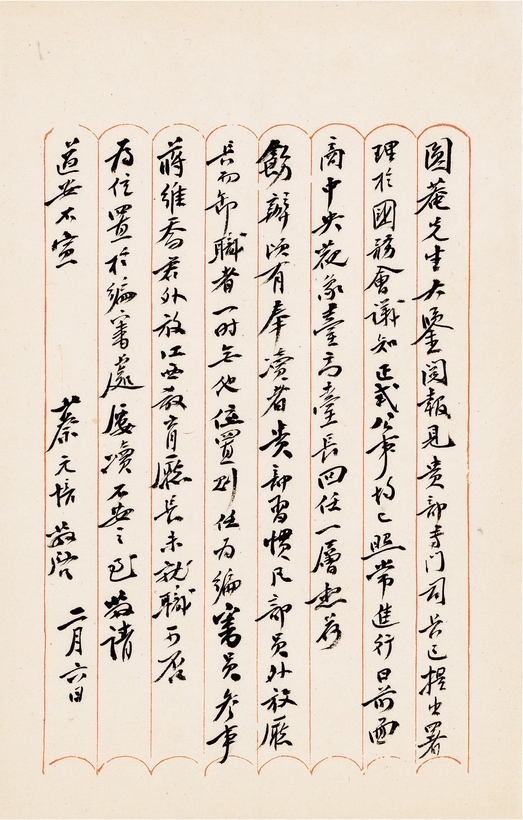 圓菴先生大鑒閱報見貴部專門司長已提出署
理於國務會議知正式公事均已照常進行日前面
商中央觀象臺高臺長回任一層想荷
飭辦頃有奉瀆者貴部習慣凡部員外放廳
長而卸職者一時無他位置則任為編審員參事
蔣維喬君外放江西教育廳長未就職可否
為位置於編審處屢瀆不安之至敬請
道安不宣 蔡元培敬啓 二月六日